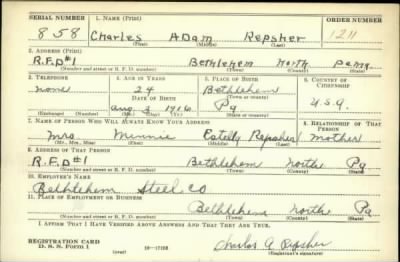 SERIAL NUMBER 1. NAME (Print) ORDER NUMBER
858 Charles Adam Repsher 1211
(First) (Middle) (Last)
2. ADDRESS (Print)
R.F.D #1 Bethlehem North Penna
(Number and street or R. F. D. number) (Town) (County) (State)
3. TELEPHONE 4. AGE IN YEARS 5. PLACE OF BIRTH 6. COUNTRY OF CITIZENSHIP
none 24 Bethlehem
DATE OF BIRTH (Town or county)
Aug 3 1916 Pa U.S.A.
(Exchange) (Number) (Mo.) (Day) (Yr.) (State or country)
7. NAME OF PERSON WHO WILL ALWAYS KNOW YOUR ADDRESS 8. RELATIONSHIP OF THAT PERSON
Mrs Minnie Estella Repsher mother
(Mr., Mrs., Miss) (First) (Middle) (Last)
9. ADDRESS OF THAT PERSON
R.F.D #1 Bethlehem North Pa
(Number and street or R. F. D. number) (Town) (County) (State)
10. EMPLOYER'S NAME
Bethlehem Steel Co
11. PLACE OF EMPLOYMENT OR BUSINESS
Bethlehem North Pa
(Number and street or R. F. D. number) (Town) (County) (State)
I AFFIRM THAT I HAVE VERIFIED ABOVE ANSWERS AND THAT THEY ARE TRUE.
REGISTRATION CARD
D. S. S. Form 1 (over) Charles A Repsher
(Registrant's signature)